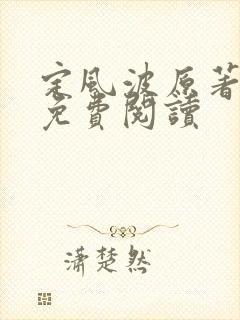 定風波原著
免費閱讀
瀟楚然